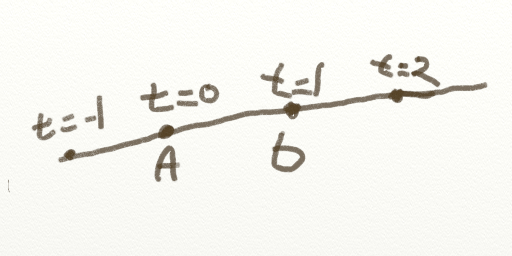 t=-1 t=0 t=1 t=2
A b